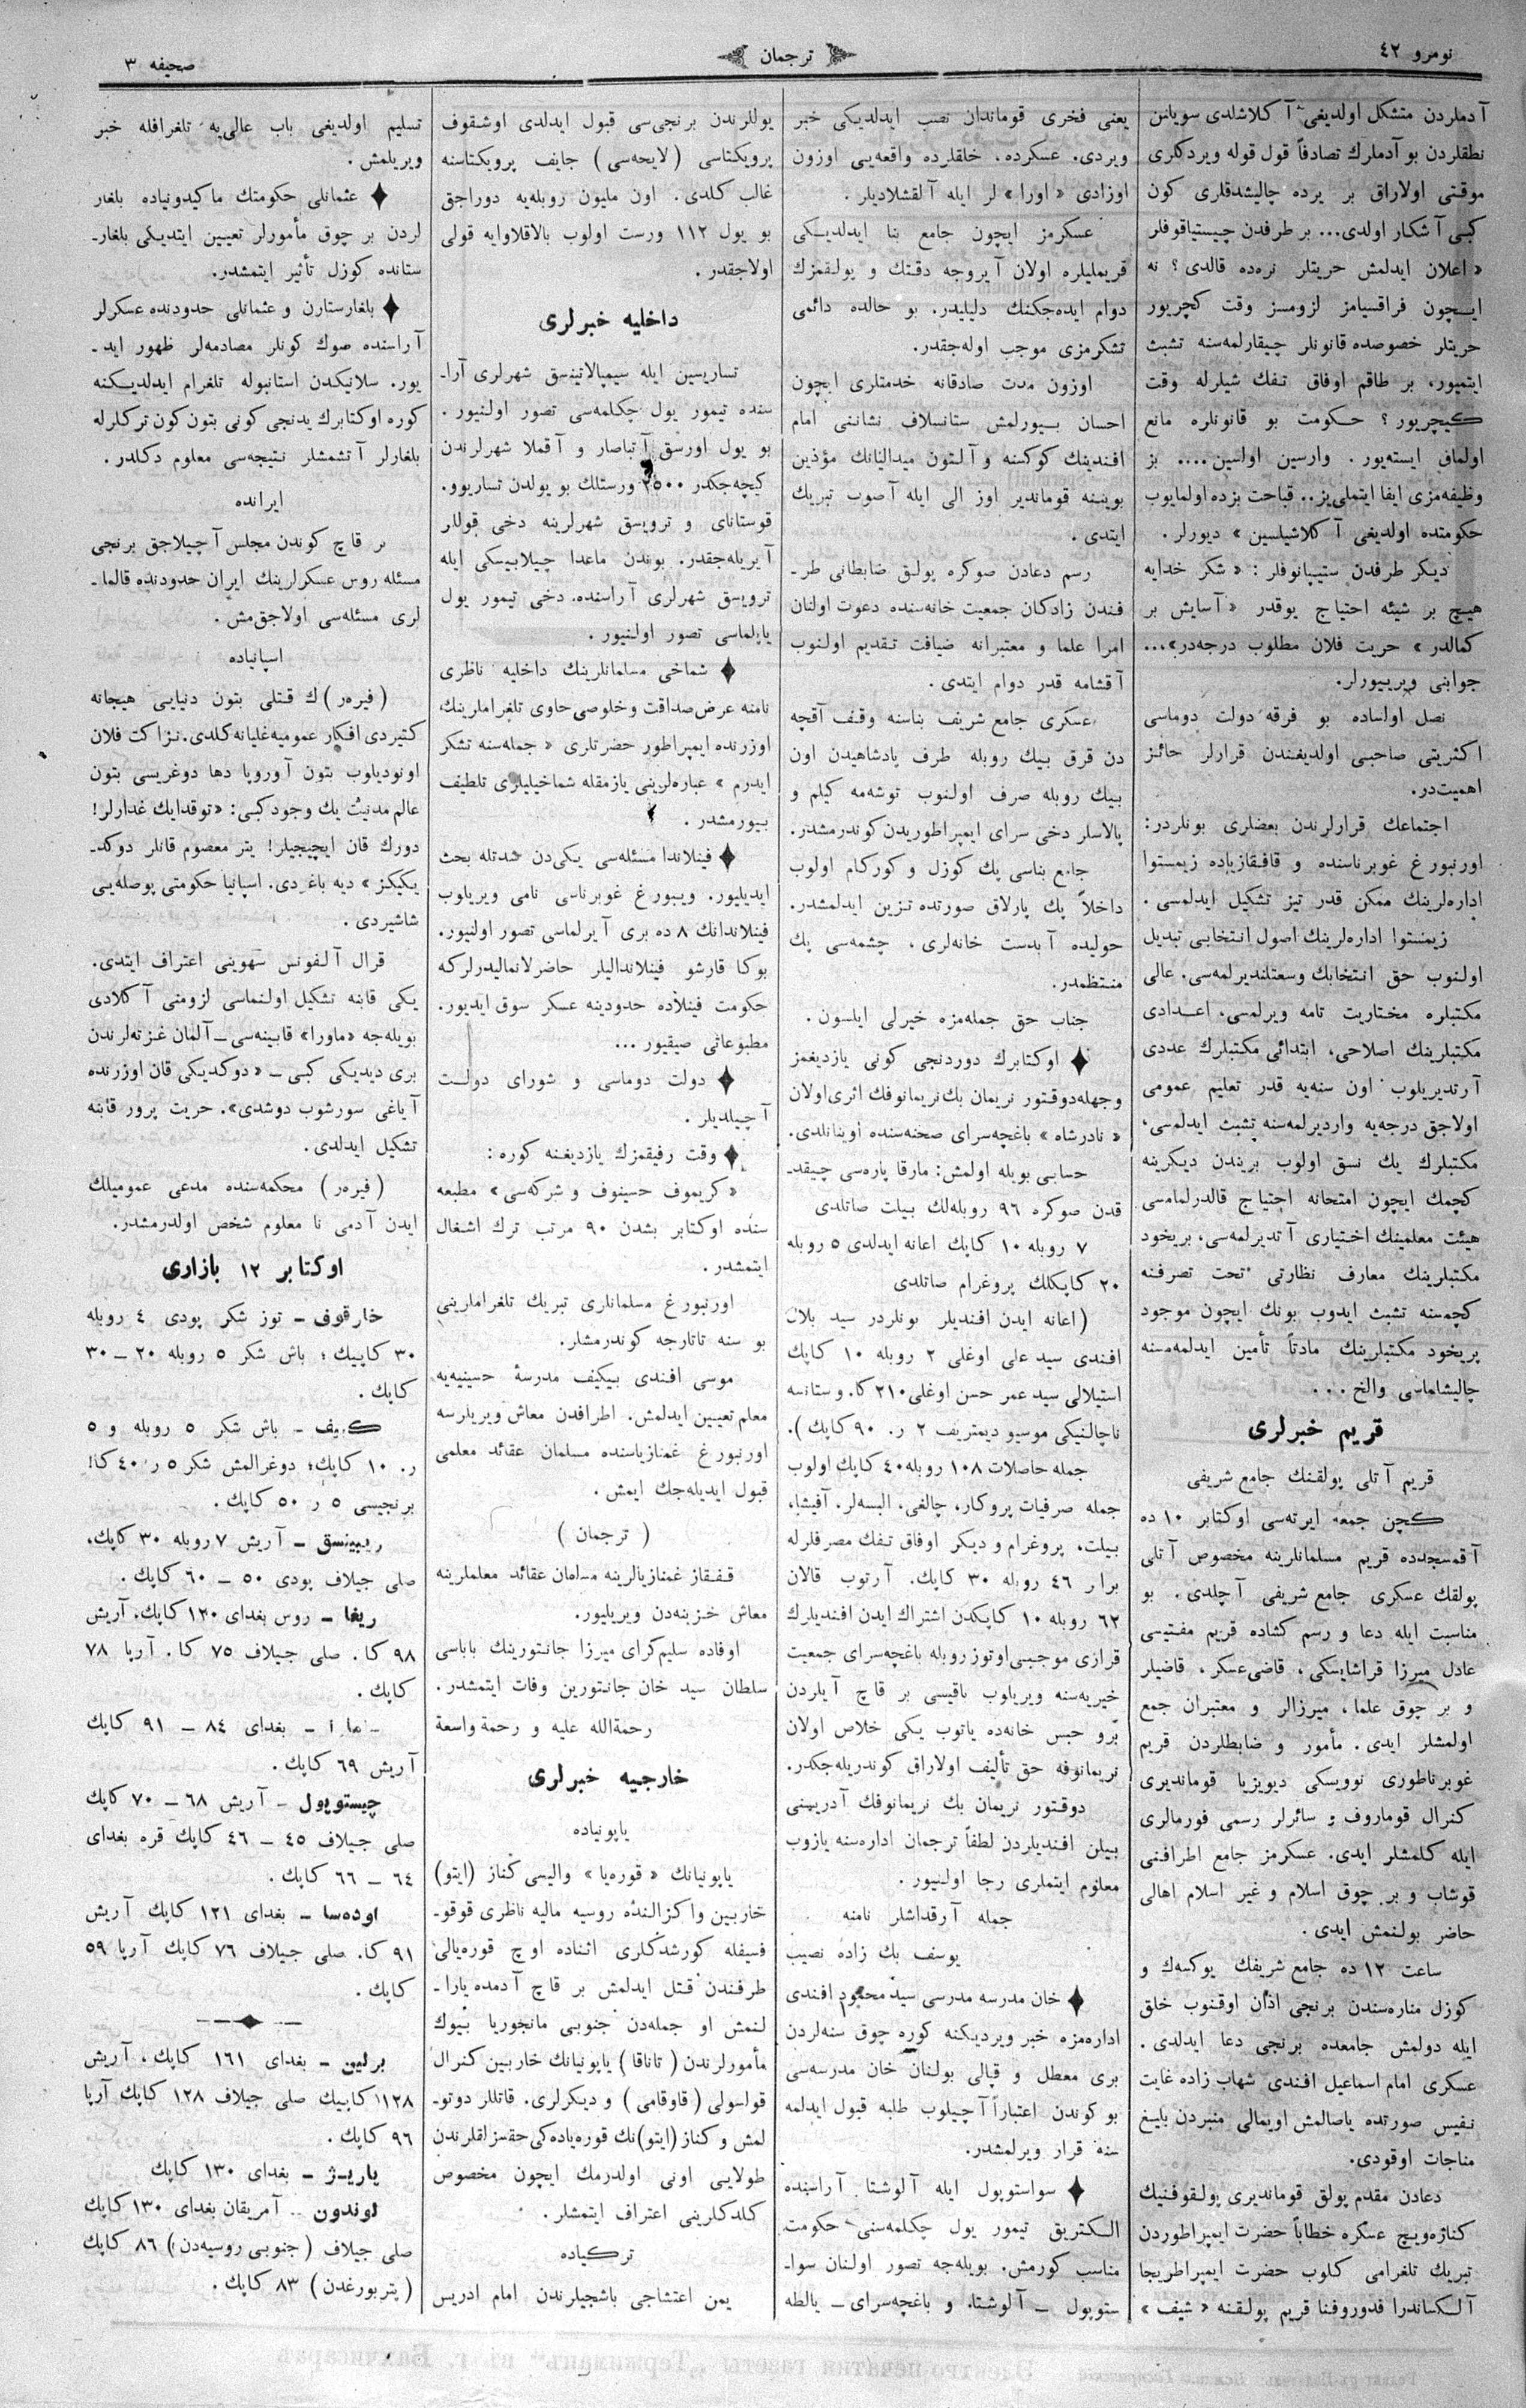 نومرو ٤٢
ترجمان
صحیفه ٣
آدملردن متشكل اولدیغی آكلاشلدی سویلنن
نطقلردن بو آدملرك تصادفاً قول قوله ویردكلری
موقتی اولاراق بر یرده چالیشدقلری كون
كبی آشكار اولدی... بر طرفدن چیستیاقوفلر
« اعلان ایدلمش حریتلر نره‌ده قالدی؟ نه
ایچون فراقسیامز لزومسز وقت كچریور
حریتلر خصوصده قانونلر چیقارلمه‌سنه تشبث
ایتمیور، بر طاقم اوفاق تفك شیلرله وقت
كیچریور؟ حكومت بو قانونلره مانع
اولماق ایسته‌یور. وارسین اولسین.... بز
وظیفه‌مزی ایفا ایتملی‌یز.. قباحت بزده اولمایوب
حكومتده اولدیغی آكلاشیلسین » دیورلر.
دیكر طرفدن ستیپانوفلر: « شكر خدایه
هیچ بر شیئه احتیاج یوقدر « آسایش بر
كمالدر » حریت فلان مطلوب درجه‌در»...
جوابنی ویریورلر.
نصل اولساده بو فرقه دولت دوماسی
اكثریتی صاحبی اولدیغندن قرارلر حائز
اهمیت‌در.
اجتماعك قرارلرندن بعضلری بونلردر:
اورنبورغ غوبرناسنده و قافقازیاده زیمستوا
اداره‌لرینك ممكن قدر تیز تشكیل ایدلمسی.
زیمستوا اداره‌لرینك اصول انتخابی تبدیل
اولنوب حق انتخابك وسعتلندیرلمه‌سی. عالی
مكتبلره مختاریت تامه ویرلمسی، اعدادی
مكتبلرینك اصلاحی، ابتدائی مكتبلرك عددی
آرتدیریلوب اون سنه‌یه قدر تعلیم عمومی
اولاجق درجه‌یه واردیرلمه‌سنه تشبث ایدلمسی،
مكتبلرك یك نسق اولوب بریندن دیكرینه
كچمك ایچون امتحانه احتیاج قالدرلمامسی
هیئت معلمینك اختیاری آتدیرلمه‌سی، بریخود
مكتبلرینك معارف نظارتی تحت تصرفنه
كچمسنه تشبث ایدوب بونك ایچون موجود
پریخود مكتبلرینك مادتاً تأمین ایدلمه‌مسنه
چالیشلماسی والخ ...
قریم خبرلری
قریم آتلی پولقنك جامع شریفی
كچن جمعه ایرته‌سی اوكتابر ١٠ ده
آقمسجدده قریم مسلمانلرینه مخصوص آتلی
پولقك عسكری جامع شریفی آچلدی. بو
مناسبت ایله دعا و رسم كشاده قریم مفتیسی
عادل میرزا قراشایسكی، قاضی‌عسكر، قاضیلر
و بر چوق علما، میرزالر و معتبران جمع
اولمشلر ایدی. مأمور و ضابطلردن قریم
غوبرناطوری نوویسكی دیویزیا قوماندیری
كنرال قوماروف و سائرلر رسمی فورمالری
ایله كلمشلر ایدی. عسكرمز جامع اطرافنی
قوشاب و بر چوق اسلام و غیر اسلام اهالی
حاضر بولنمش ایدی.
ساعت ١٢ ده جامع شریفك یوكسه‌ك و
كوزل مناره‌سندن برنجی اذان اوقنوب خلق
ایله دولمش جامعده برنجی دعا ایدلدی.
عسكری امام اسماعیل افندی شهاب زاده غایت
نفیس صورتده یاصالمش اویمالی منبردن بلیغ
مناجات اوقودی.
دعادن مقدم پولق قوماندیری پولقوفنیك
كنازه‌ویچ عسكره خطاباً حضرت ایمپراطوردن
تبریك تلغرامی كلوب حضرت ایمپراطریجا
آلكساندرا فدوروفنا قریم پولقنه « شیف »
یعنی فخری قوماندان نصب ایدلدیكی خبر
ویردی. عسكرده، خلقلرده واقعه‌یی اوزون
اوزادی « اورا » لر ایله آلقشلادیلر.
عسكرمز ایچون جامع بنا ایدلدیكی
قریملیلره اولان آیروجه دقتك و یولقمزك
دوام ایده‌جكنك دلیلیدر. بو حالده دائمی
تشكرمزی موجب اوله‌جقدر.
اوزون مدت صادقانه خدمتلری ایچون
احسان بیورلمش ستانسلاف نشاننی امام
افندینك كوكسنه و آلتون میدالیانك مؤذین
بویننه قوماندیر اوز الی ایله آصوب تبریك
ایتدی.
رسم دعادن صوكره یولق ضابطانی طر-
فندن زادكان جمعیت خانه‌سنده دعوت اولنان
امرا علما و معتبرانه ضیافت تقدیم اولنوب
آقشامه قدر دوام ایتدی.
عسكری جامع شریف بناسنه وقف آقچه
دن قرق بیك روبله طرف پادشاهیدن اون
بیك روبله صرف اولنوب توشه‌مه كیلم و
پالاسلر دخی سرای ایمپراطوریدن كوندرمشدر.
جامع بناسی پك كوزل و كوركام اولوب
داخلاً پك پارلاق صورتده تزین ایدلمشدر.
حولیده آبدست خانه‌لری، چشمه‌سی پك
منتظمدر.
جناب حق جمله‌مزه خیرلی ایلسون.
اوكتابرك دوردنجی كونی یازدیغمز
وجهله دوقتور نریمان بك نریمانوفك اثری اولان
« نادرشاه » باغچه‌سرای صحنه‌سنده اوینانلدی.
حسابی بویله اولمش: مارقا پاره‌سی چیقد-
قدن صوكره ٩٦ روبله‌لك بیلت صاتلدی
٧ روبله ١٠ كاپك اعانه ایدلدی ٥ روبله
٢٠ كاپكلك پروغرام صاتلدی
(اعانه ایدن افندیلر بونلردر سید بلال
افندی سید علی اوغلی ٢ روبله ١٠ كاپك
استیلالی سید عمر حسن اوغلی ٢١٠ كا. و ستانسه
ناچالنیكی موسیو دیمتریف ٢ ر. ٩٠ كاپك).
جمله حاصلات ١٠٨ روبله ٤٠ كاپك اولوب
جمله صرفیات پروكار، چالغی، البسه‌لر، آفیشا،
بیلت، پروغرام و دیكر اوفاق تفك مصرفلرله
برار ٤٦ روبله ٣٠ كاپك. آرتوب قالان
٦٢ روبله ١٠ كاپكدن اشتراك ایدن افندیلرك
قرازی موجبی اوتوز روبله باغچه‌سرای جمعیت
خیریه‌سنه ویریلوب باقیسی بر قاچ آیلردن
برو حبس خانه‌ده یاتوب یكی خلاص اولان
نریمانوفه حق تألیف اولاراق كوندریله‌جكدر.
دوقتور نریمان بك نریمانوفك آدریسنی
بیلن افندیلردن لطفاً ترجمان اداره‌سنه یازوب
معلوم ایتملری رجا اولنیور.
جمله آرقداشلر نامنه
یوسف بك زاده نصیب
خان مدرسه مدرسی سید محمود افندی
اداره‌مزه خبر ویردیكنه كوره چوق سنه‌لردن
بری معطل و قپالی بولنان خان مدرسه‌سی
بو كوندن اعتباراً آچیلوب طلبه قبول ایدلمه
سنه قرار ویرلمشدر.
سواستوپول ایله آلوشتا آراسنده
الكتریق تیمور یول چكلمه‌سنی حكومت
مناسب كورمش. بویله‌جه تصور اولنان سوا-
ستوپول – آلوشتا. و باغچه‌سرای – یالطه
یوللرندن برنجی‌سی قبول ایدلدی اوشقوف
پرویكتاسی (لایحه‌سی) جایف پرویكتاسنه
غالب كلدی. اون ملیون روبله‌یه دوراجق
بو یول ١١٢ ورست اولوب بالاقلاوایه قولی
اولاجقدر.
داخلیه خبرلری
تساریسین ایله سیمپالاتینسق شهرلری آرا-
سنده تیمور یول چكلمه‌سی تصور اولنیور.
بو یول اورسق آتباصار و آقملا شهرلرندن
كیچه‌جكدر ٢٥٠٠ ورستلك بو یولدن تساریوو.
قوستانای و ترویسق شهرلرینه دخی قوللر
آیریله‌جقدر. بوندن ماعدا چیلابیسكی ایله
ترویسق شهرلری آراسنده. دخی تیمور یول
یاپلماسی تصور اولنیور.
شماخی مسلمانلرینك داخلیه ناظری
نامنه عرض صداقت و خلوصی حاوی تلغراملرینك،
اوزرنده ایمپراطور حضرتلری « جمله‌سنه تشكر
ایدرم » عباره‌لرینی یازمقله شماخیلیلری تلطیف
بیورمشدر.
فینلاندا مسئله‌سی یكی‌دن شدتله بحث
ایدیلیور. ویبورغ غوبرناسی نامی ویریلوب
فینلاندانك ٨ ده بری آیرلماسی تصور اولنیور.
بوكا قارشو فینلاندالیلر حاضرلانمالیدرلركه
حكومت فینلاده حدودینه عسكر سوق ایدیور.
مطبوعاتی صیقیور...
دولت دوماسی و شورای دولت
آچیلدیلر.
وقت رفیقمزك یازدیغنه كوره:
« كریموف حسینوف و شركه‌سی » مطبعه
سنده اوكتابر بشدن ٩٠ مرتب ترك اشغال
ایتمشدر.
اورنبورغ مسلمانلری تبریك تلغراملرینی
بو سنه تاتارجه كوندرمشلر.
موسی افندی بیكیف مدرسهٔ حسینیه‌یه
معلم تعیین ایدلمش. اطرافدن معاش ویریلرسه
اورنبورغ غمنازیاسنده مسلمان عقائد معلمی
قبول ایدیله‌جك ایمش.
(ترجمان)
قفقاز غمنازیالرینه مسلمان عقائد معلملرینه
معاش خزینه‌دن ویریلیور.
اوفاده سلیم‌كرای میرزا جانتورینك باباسی
سلطان سید خان جانتورین وفات ایتمشدر.
رحمةالله علیه و رحمة واسعة
خارجیه خبرلری
یاپونیاده
یاپونیانك « قوره‌یا » والیسی كناز (ایتو)
خاربین واكزالنده روسیه مالیه ناظری قوقو-
فسیفله كورشدكلری اثناده اوچ قوره‌یالی
طرفندن قتل ایدلمش بر قاچ آدمده یارا-
لنمش او جمله‌دن جنوبی مانجوریا بیوك
مأمورلرندن (تاناقا) یاپونیانك خاربین كنرال
قواسولی (قاوقامی) و دیكرلری. قاتللر دوتو-
لمش و كناز (ایتو)نك قوره‌یاده‌كی حقسزلقلرندن
طولایی اونی اولدرمك ایچون مخصوص
كلدكلرینی اعتراف ایتمشلر.
تركیاده
یمن اعتشاجی باشجیلرندن امام ادریس
تسلیم اولدیغی باب عالی‌یه تلغرافله خبر
ویریلمش.
عثمانلی حكومتك ماكیدونیاده بلغار
لردن بر چوق مأمورلر تعیین ایتدیكی بلغار-
ستانده كوزل تأثیر ایتمشدر.
بلغارستارن و عثمانلی حدودنده عسكرلر
آراسنده صوك كونلر مصادمه‌لر ظهور اید-
یور. سلانیكدن استانبوله تلغرام ایدلدیكنه
كوره اوكتابرك یدنجی كونی بتون كون تركلرله
بلغارلر آتشمشلر نتیجه‌سی معلوم دكلدر.
ایرانده
بر قاچ كوندن مجلس آچیلاجق برنجی
مسئله روس عسكرلرینك ایران حدودنده قالما-
لری مسئله‌سی اولاجق‌مش.
اسپانیاده
(فیره‌ر)ك قتلی بتون دنیایی هیجانه
كتیردی افكار عمومیه غلیانه كلدی. نزاكت فلان
اونودیلوب بتون آوروپا دها دوغریسی بتون
عالم مدنیت یك وجود كبی: « توقدایك غدارلر!
دورك قان ایچیجیلر! یتر معصوم قانلر دوكد-
یكیكز » دیه باغردی. اسپانیا حكومتی پوصله‌یی
شاشیردی.
قرال آلفونس سهوینی اعتراف ایتدی.
یكی قابنه تشكیل اولنماسی لزومنی آكلادی
بویله‌جه «ماورا» قابینه‌سی – آلمان غزته‌لرندن
بری دیدیكی كبی – « دوكدیكی قان اوزرنده
آیاغی سورشوب دوشدی». حریت پرور قابنه
تشكیل ایدلدی.
(فیره‌ر) محكمه‌سنده مدعی عمومیلك
ایدن آدمی نا معلوم شخص اولدرمشدر.
اوكتابر ١٢ بازاری
خارقوف – توز شكر پودی ٤ روبله
٣٠ كاپیك؛ باش شكر ٥ روبله ٢٠ – ٣٠
كاپك.
كییف – باش شكر ٥ روبله و ٥
ر. ١٠ كاپك؛ دوغرالمش شكر ٥ ر ٤٠ كا!
برنجیسی ٥ ر ٥٠ كاپك.
ریبینسق – آریش ٧ روبله ٣٠ كاپك،
صلی جیلاف پودی ٥٠ – ٦٠ كاپك.
ریغا – روس بغدای ١٢٠ كاپك، آریش
٩٨ كا. صلی جیلاف ٧٥ كا. آرپا ٧٨
كاپك.
– بغدای ٨٤ – ٩١ كاپك
آریش ٦٩ كاپك.
چیستوپول – آریش ٦٨ – ٧٠ كاپك
صلی جیلاف ٤٥ – ٤٦ كاپك قره بغدای
٦٤ – ٦٦ كاپك.
اوده‌سا – بغدای ١٢١ كاپك آریش
٩١ كا. صلی جیلاف ٧٦ كاپك آرپا ٥٩
كاپك.
برلین – بغدای ١٦١ كاپك، آریش
١٢٨ كاپیك صلی جیلاف ١٢٨ كاپك آرپا
٩٦ كاپك.
پاریژ – بغدای ١٣٠ كاپك
لوندون – آمریقان بغدای ١٣٠ كاپك
صلی جیلاف (جنوبی روسیه‌دن) ٨٦ كاپك
(پتربورغدن) ٨٣ كاپك.